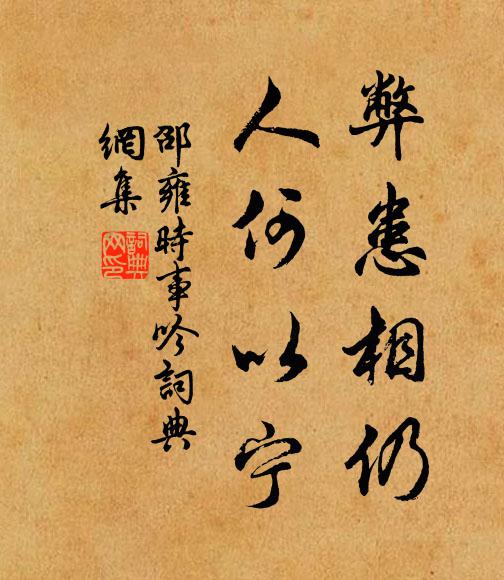 弊患相仍
人何以宁
邵雍時事吟詞典
網集
詞典
网印